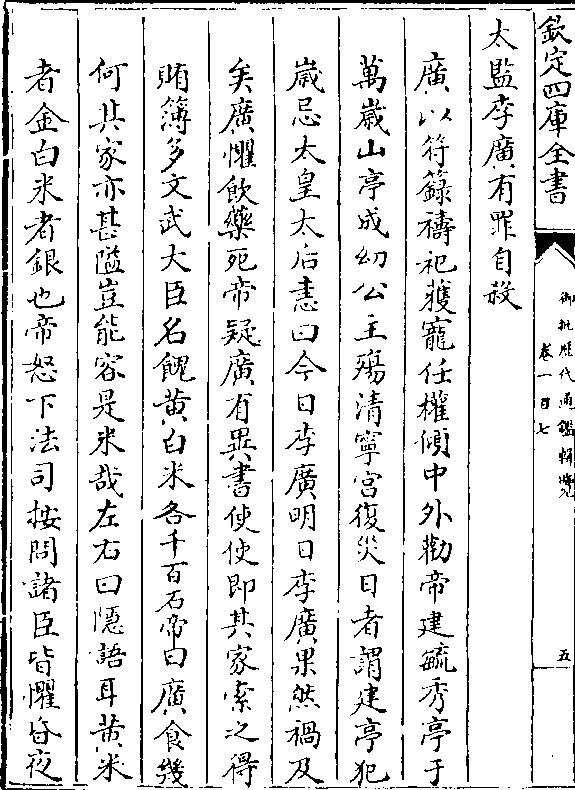 欽定四庫全書
御批歷代通鑑輯覽
卷一百七
五
太監李廣有罪自殺
廣以符籙禱祀蒦寵任權傾中外勸帝建毓秀亭于
萬嵗山亭成幼公主殤清寧宫復災日者謂建亭犯
嵗忌太皇太后恚曰今日李廣明日李廣果然禍及
矣廣懼飲藥死帝疑廣有異書使使即其家索之得
賄簿多文武大臣名餽黄白米各千百石帝曰廣食幾
何其家亦甚隘豈能容是米哉左右曰隱語耳黄米
者金白米者銀也帝怒下法司按問諸臣皆懼昏夜